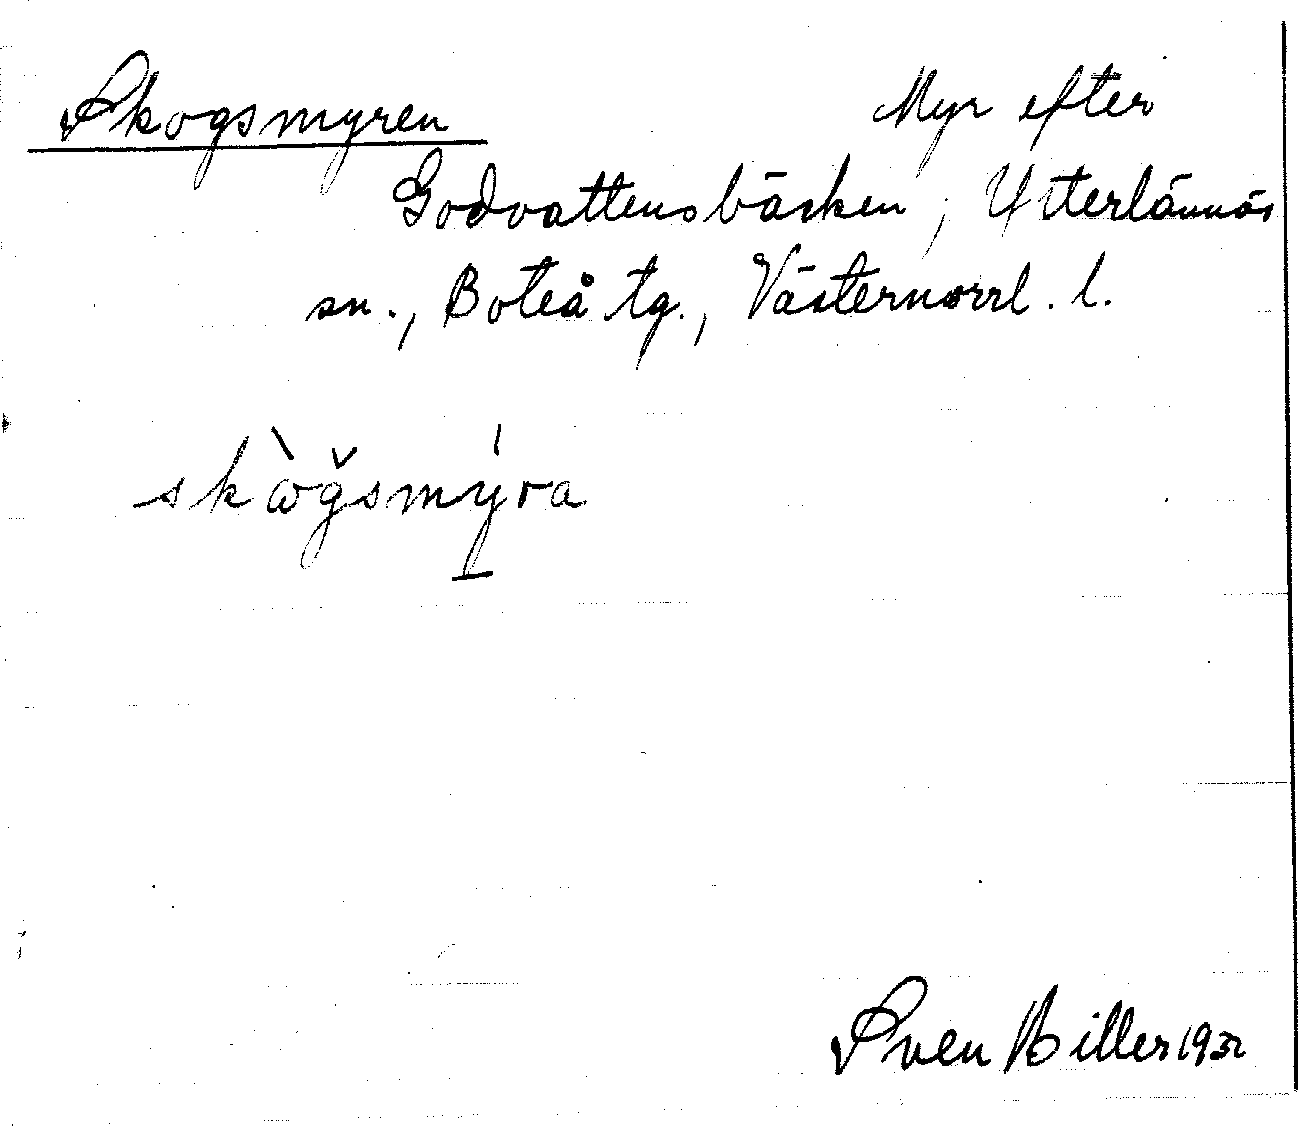 Skogsmyren Myr efter
Godvattensbäcken, Ytterlännäs
sn., Boteå tg., Västernorrl. l.
skὼğsmýra
Sven Biller 1932